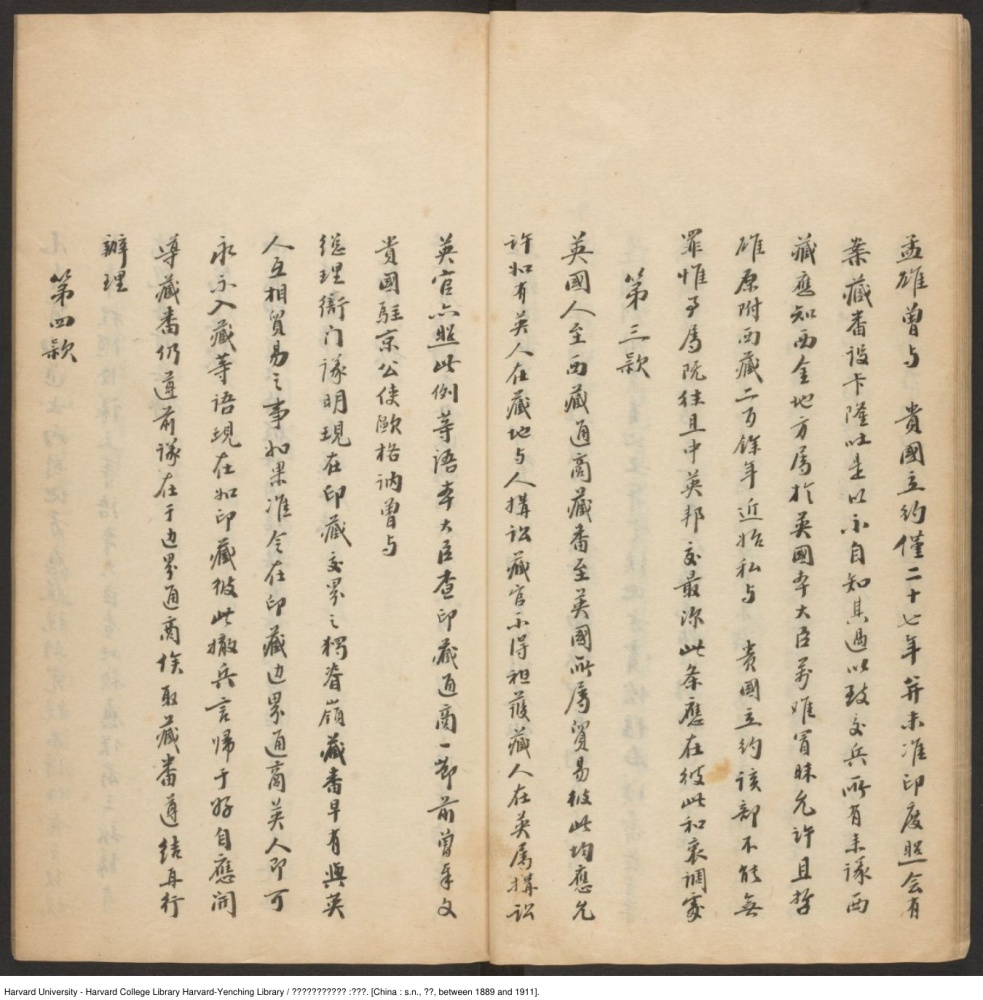 孟雄曾与　貴國立約僅二十七年并未准印度照会有
案藏番設卡隆吐是以不自知其過以致交兵所有来諑西
藏應知西金地方屬於英國本大臣萬难冒昧允許且哲
雄原附西藏二百餘年近始私与　貴國立約該部不能無
罪惟事属既往且中英邦交最深此条應在彼此和衷調處
第三款
英國人至西藏通商藏番至英國所属貿易彼此均應允
许如有英人在藏地与人搆訟藏官不得袒護藏人在英属搆訟
英官亦照此例等語本大臣查印藏通商一節前曾奉文
貴國駐京公使歐格讷曾与
總理衙门諑明現在印藏交界之獨脊嶺藏番早有與英
人互相貿易之事如果准令在印藏边界通商英人即可
永不入藏等語現在如印藏彼此撤兵言歸于好自應開
導藏番仍遵前諑在于边界通商俟取藏番遵結再行
辦理
第四款
Harvard University - Harvard College Library Harvard-Yenching Library / ??????????? :???. [China : s.n., ??, between 1889 and 1911].